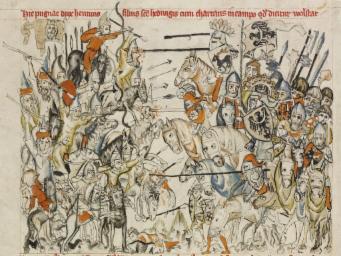 hic pugnat dux henricus filius sce hedwigis cum thartaris in campo qd dicitur wolstat